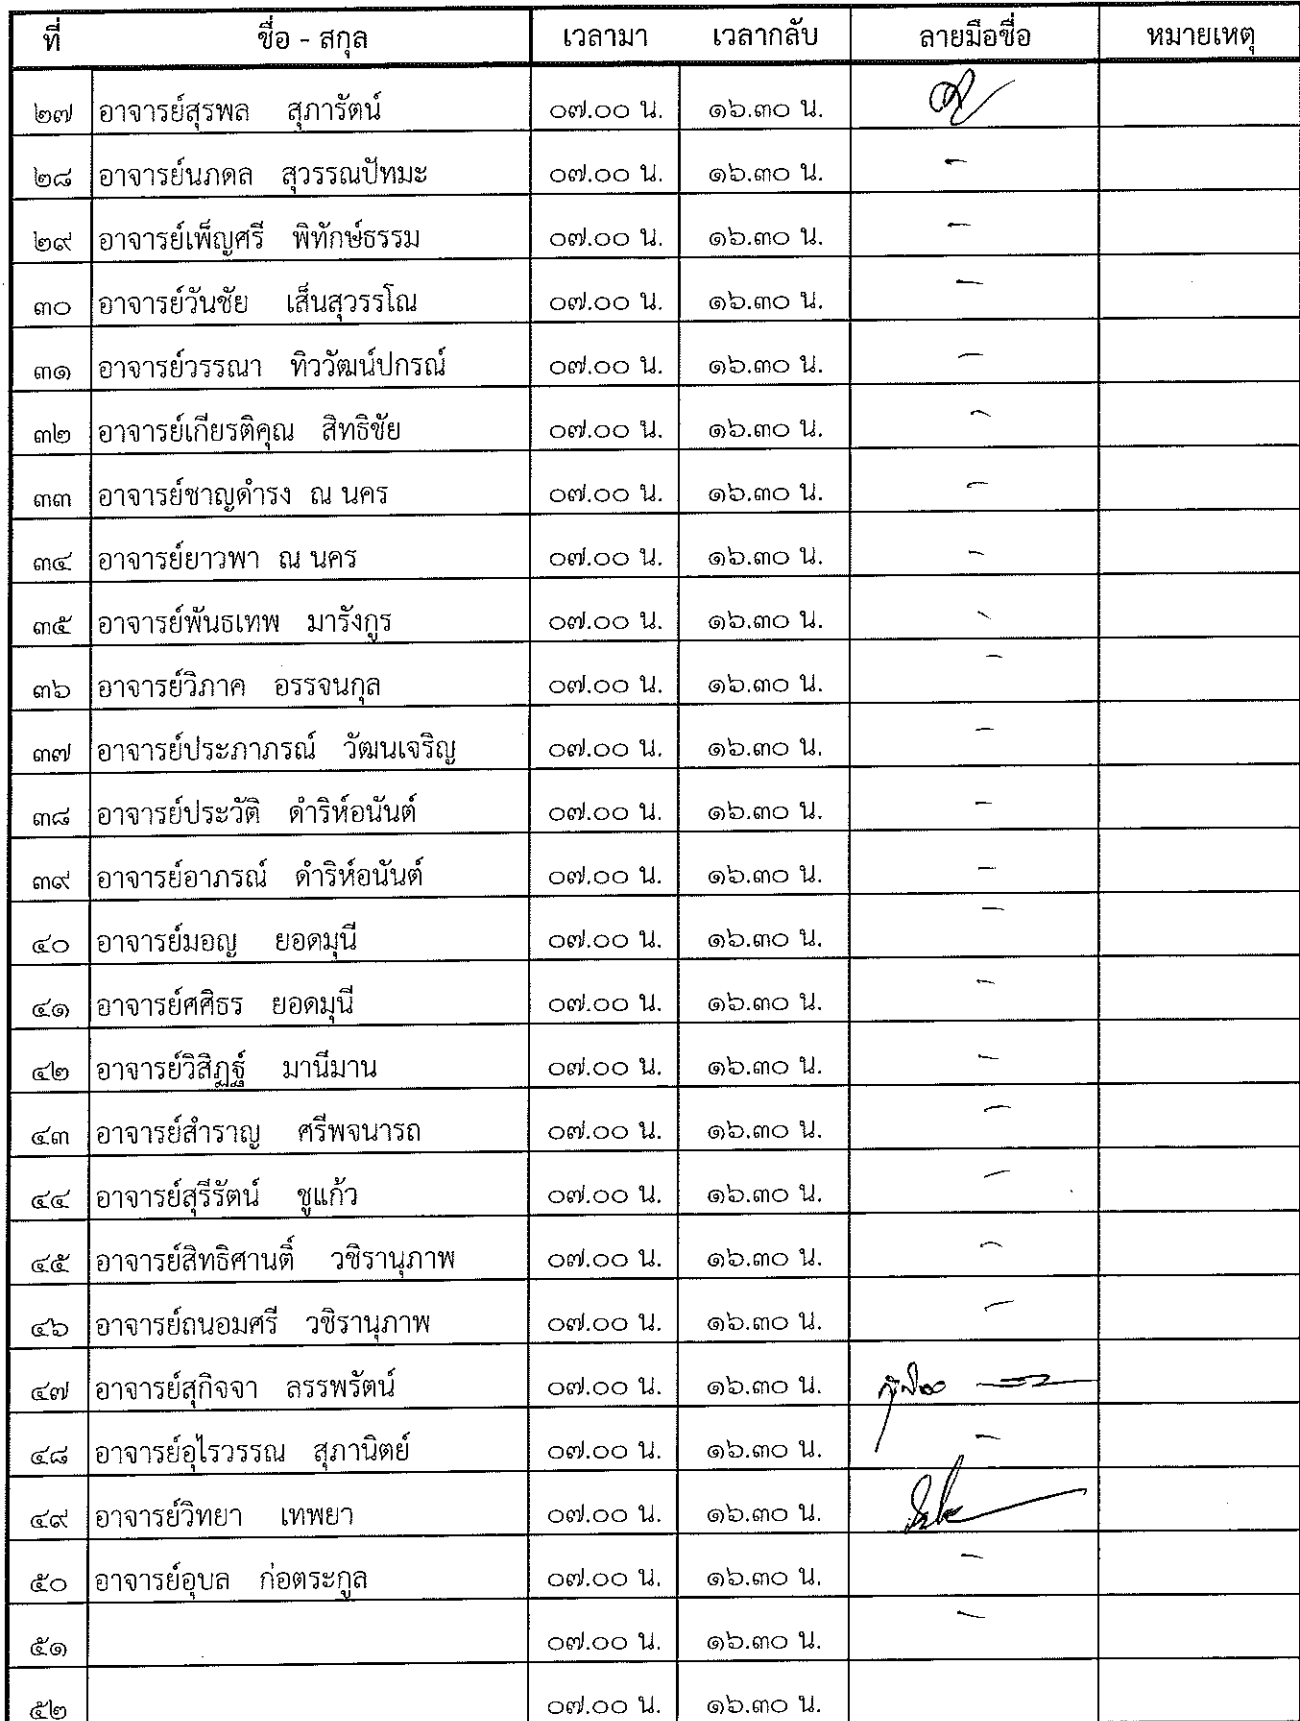 ที่ ชื่อ - สกุล เวลามา เวลากลับ ลายมือชื่อ หมายเหตุ
๒๗ อาจารย์สุรพล สุภารัตน์ ๐๗.๐๐ น. ๑๖.๓๐ น.
๒๘ อาจารย์นภดล สุวรรณปัทมะ ๐๗.๐๐ น. ๑๖.๓๐ น. -
๒๙ อาจารย์เพ็ญศรี พิทักษ์ธรรม ๐๗.๐๐ น. ๑๖.๓๐ น. -
๓๐ อาจารย์วันชัย เส็นสุวรรโณ ๐๗.๐๐ น. ๑๖.๓๐ น. -
๓๑ อาจารย์วรรณา ทิววัฒน์ปกรณ์ ๐๗.๐๐ น. ๑๖.๓๐ น. -
๓๒ อาจารย์เกียรติคุณ สิทธิชัย ๐๗.๐๐ น. ๑๖.๓๐ น. -
๓๓ อาจารย์ชาญดำรง ณ นคร ๐๗.๐๐ น. ๑๖.๓๐ น. -
๓๔ อาจารย์ยาวพา ณ นคร ๐๗.๐๐ น. ๑๖.๓๐ น. -
๓๕ อาจารย์พันธเทพ มารังกูร ๐๗.๐๐ น. ๑๖.๓๐ น. -
๓๖ อาจารย์วิภาค อรรจนกุล ๐๗.๐๐ น. ๑๖.๓๐ น. -
๓๗ อาจารย์ประภาภรณ์ วัฒนเจริญ ๐๗.๐๐ น. ๑๖.๓๐ น. -
๓๘ อาจารย์ประวัติ ดำริห์อนันต์ ๐๗.๐๐ น. ๑๖.๓๐ น. -
๓๙ อาจารย์อาภรณ์ ดำริห์อนันต์ ๐๗.๐๐ น. ๑๖.๓๐ น. -
๔๐ อาจารย์มอญ ยอดมุนี ๐๗.๐๐ น. ๑๖.๓๐ น. -
๔๑ อาจารย์ศศิธร ยอดมุนี ๐๗.๐๐ น. ๑๖.๓๐ น. -
๔๒ อาจารย์วิสิฏฐ์ มานีมาน ๐๗.๐๐ น. ๑๖.๓๐ น. -
๔๓ อาจารย์สำราญ ศรีพจนารถ ๐๗.๐๐ น. ๑๖.๓๐ น. -
๔๔ อาจารย์สุรีรัตน์ ชูแก้ว ๐๗.๐๐ น. ๑๖.๓๐ น. -
๔๕ อาจารย์สิทธิศานติ์ วชิรานุภาพ ๐๗.๐๐ น. ๑๖.๓๐ น. -
๔๖ อาจารย์ถนอมศรี วชิรานุภาพ ๐๗.๐๐ น. ๑๖.๓๐ น. -
๔๗ อาจารย์สุกิจจา ลรรพรัตน์ ๐๗.๐๐ น. ๑๖.๓๐ น.
๔๘ อาจารย์อุไรวรรณ สุภานิตย์ ๐๗.๐๐ น. ๑๖.๓๐ น. -
๔๙ อาจารย์วิทยา เทพยา ๐๗.๐๐ น. ๑๖.๓๐ น.
๕๐ อาจารย์อุบล ก่อตระกูล ๐๗.๐๐ น. ๑๖.๓๐ น. -
๕๑ ๐๗.๐๐ น. ๑๖.๓๐ น. -
๕๒ ๐๗.๐๐ น. ๑๖.๓๐ น.